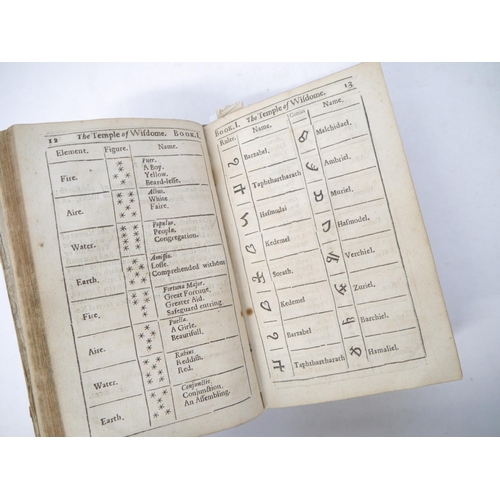 12 The Temple of Wiſdome. BOOK.I.
Element. Figure. Name.
Fire. Puer.
A Boy.
Yellow.
Beard-leſſe.
Aire. Albus.
White
Faire.
Water. Populus.
People,
Congregation.
Earth. Amiſſio.
Loſſe.
Comprehended without
Fire. Fortuna Major.
Great Fortune,
Greater Aid.
Safeguard entring.
Aire. Puella.
A Girle.
Beautifull.
Water. Rubeus
Reddiſh,
Red.
Earth. Conjunctio.
Conjunction.
An Aſſembling.
BOOK.I. The Temple of Wiſdome. 13
Ruler. Name. Name.
Bartzabel. Malchidael.
Taphthartharath Ambriel.
Haſmodai Muriel.
Kedemel Haſmodel.
Sorath. Verchiel.
Kedemel Zuriel.
Bartzabel Barchiel.
Taphthartharath Hamaliel.